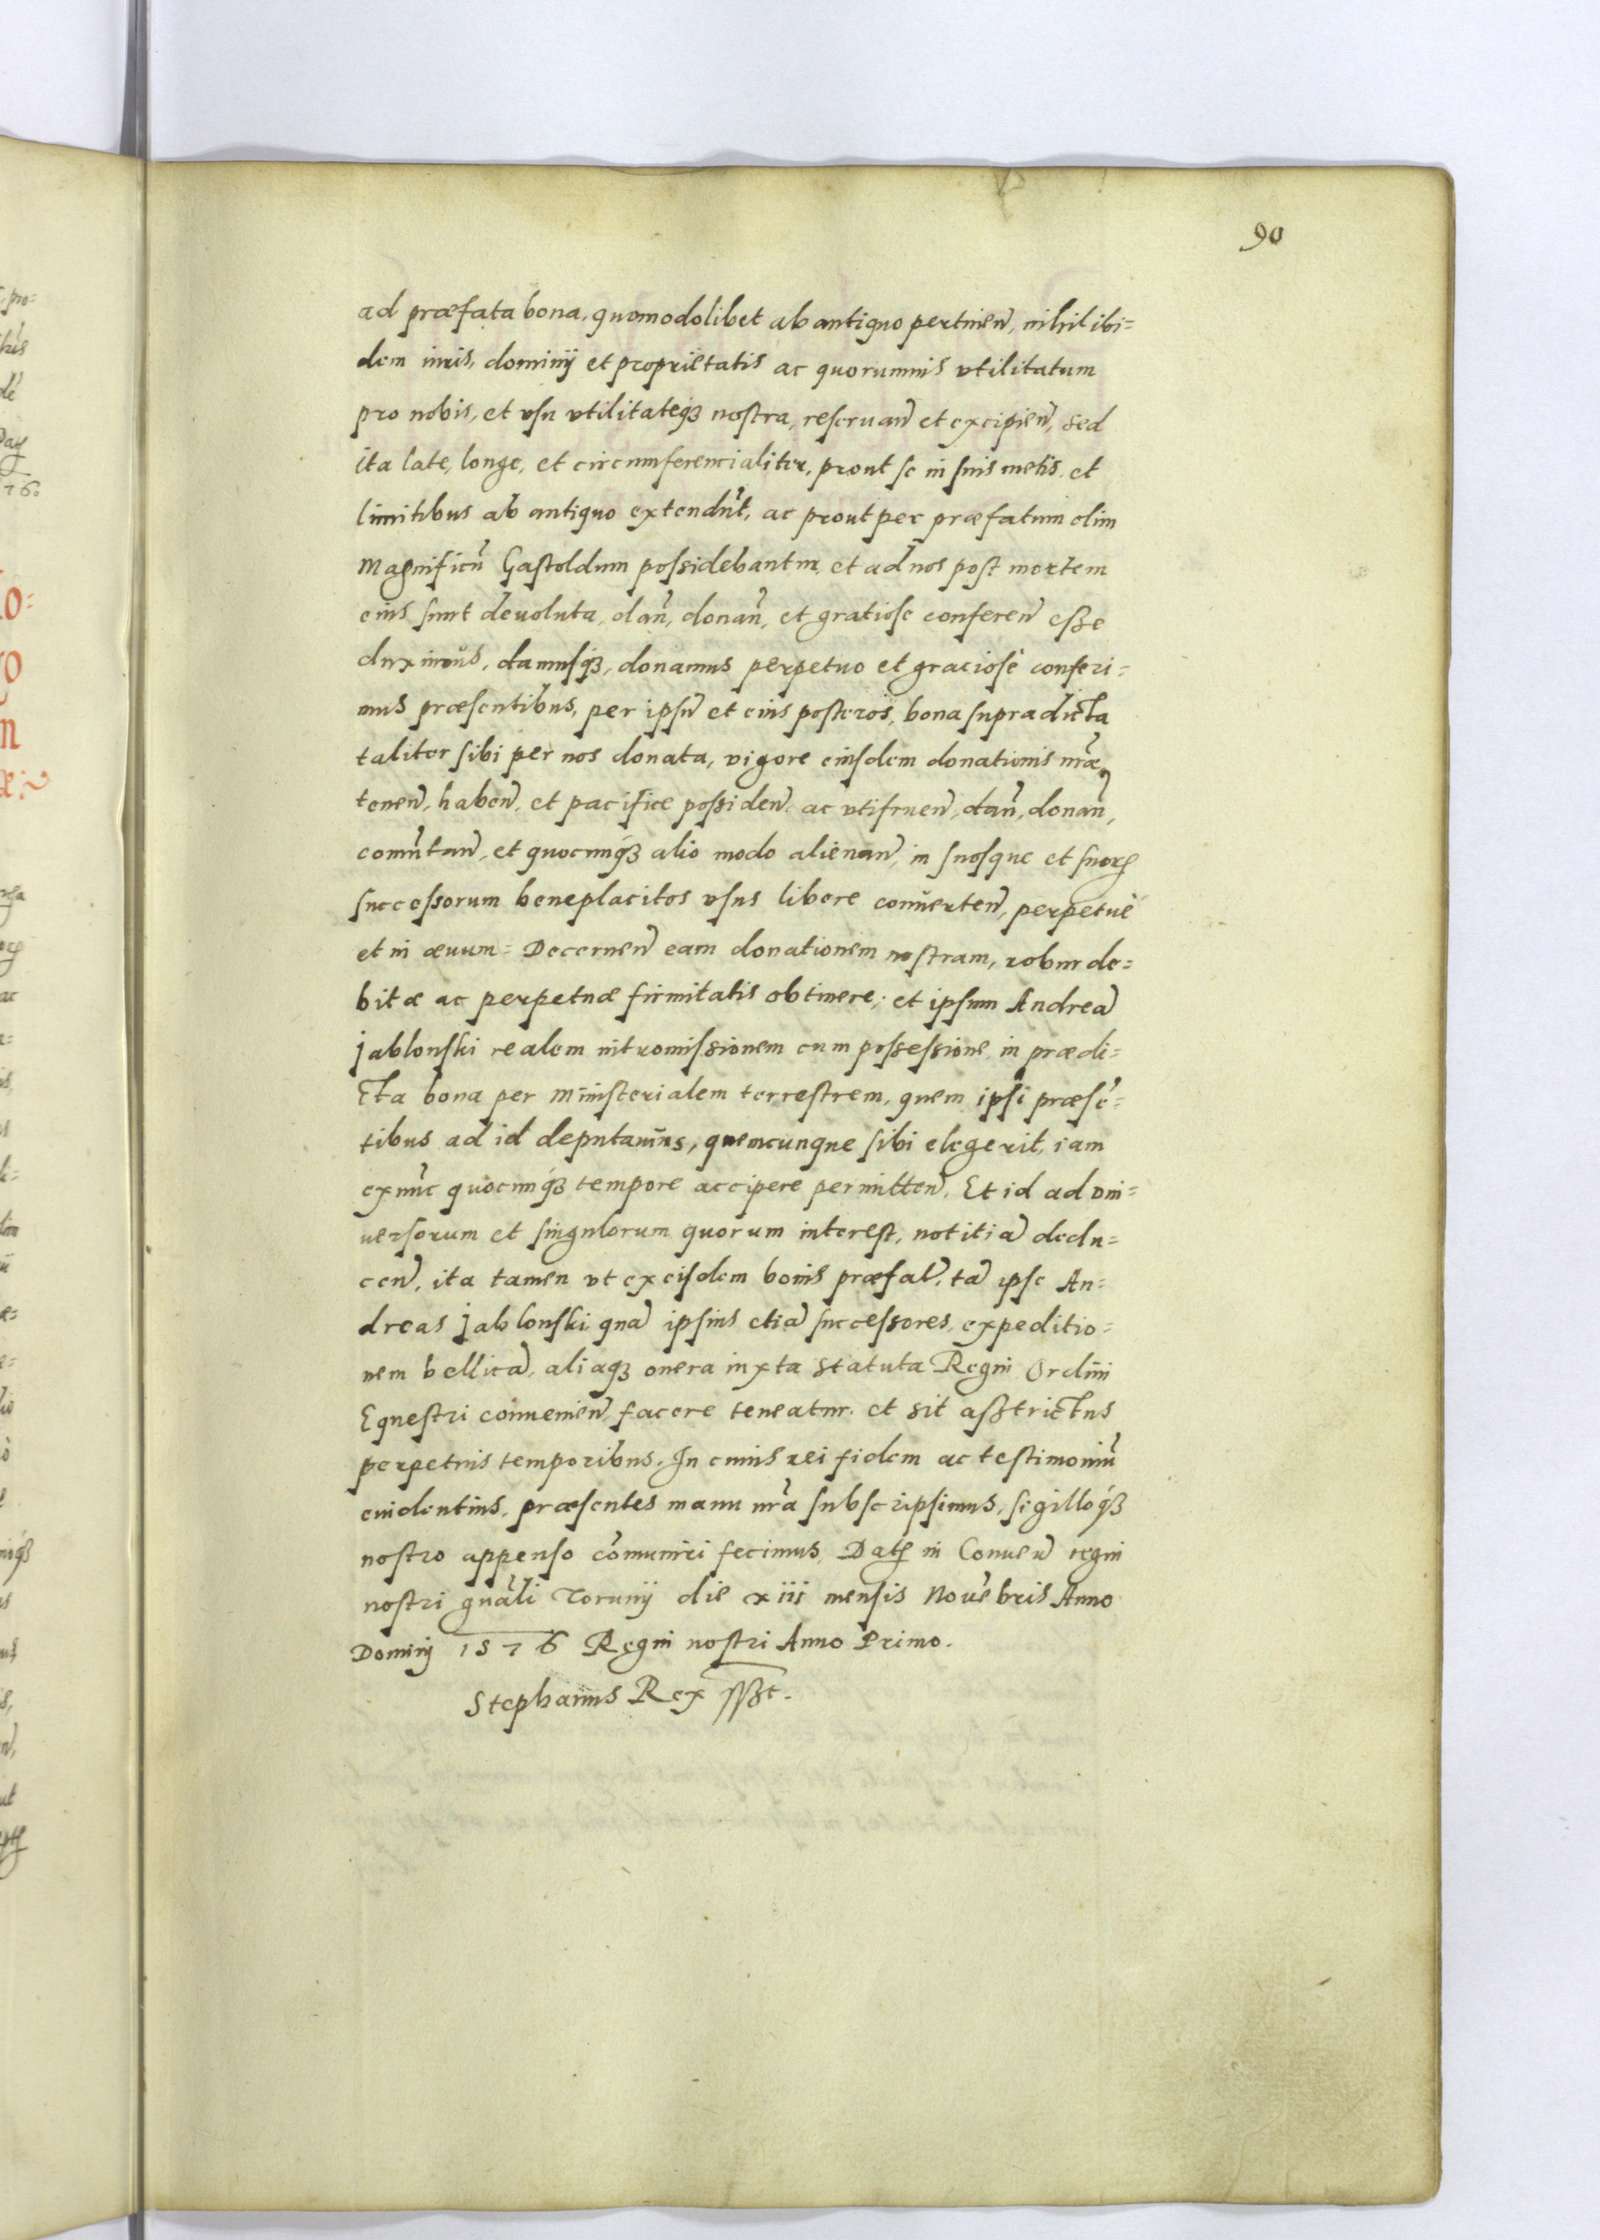 90
ad præfata bona, quomodolibet ab antiquo pertineñ, nihil ibi=
dem iuris, dominij et proprietatis ac quorumuis vtilitatum
pro nobis, et vsu vtilitateqȝ nostra, reseruañ et excipieñ, sed
ita late, longe, et circumferencialiter, prout se in suis metis et
limitibus ab antiquo extendũt, ac prout per præfatum olim
Magnificũ Gastoldum possidebantur, et ad nos post mortem
eius sunt deuoluta, dañ, donañ, et gratiose confereñ esse
duximus, damusqȝ, donamus perpetuo et graciosè conferi=
mus præsentibus, per ipsũ et eius posteros, bona supradicta
taliter sibi per nos donata, vigore eiusdem donationis nr̃æ,
teneñ, habeñ, et pacifice possideñ, ac vtifrueñ, dañ, donañ,
com̃utañ, et quocunqȝ alio modo alienañ, in suosque et suorꝝ
successorum beneplacitos vsus libere conuerteñ, perpetuè
et in æuum = Decerneñ eam donationem nostram, robur de=
bitæ ac perpetuæ firmitatis obtinere; et ipsum Andreã
Jablonski realem intromissionem cum possessione in prædi=
cta bona per Ministerialem terrestrem, quem ipsi præsẽ=
tibus ad id deputamus, quemcunque sibi elegerit, iam
exnũc quocunqȝ tempore accipere permitteñ. Et id ad vni=
uersorum et singulorum quorum interest, notitiã dedu=
ceñ, ita tamen vt ex eisdem bonis præfat̃, tã ipse An=
dreas Jablonski quã ipsius etiã successores, expeditio=
nem bellicã, aliaqȝ onera iuxta statuta Regni Ordini
Equestri conuenieñ, facere teneatur et sit asstrictus
perpetuis temporibus. In cuius rei fidem ac testimoniũ
euidentius, præsentes manu nr̃a subscripsimus, sigilloqȝ
nostro appenso cõmuniri fecimus, Datꝭ in Conueñ regni
nostri gñali Torunij die xiii mensis Nouẽbris Anno
Domini 1576 Regni nostri Anno Primo.
Stephanus Rex sst.